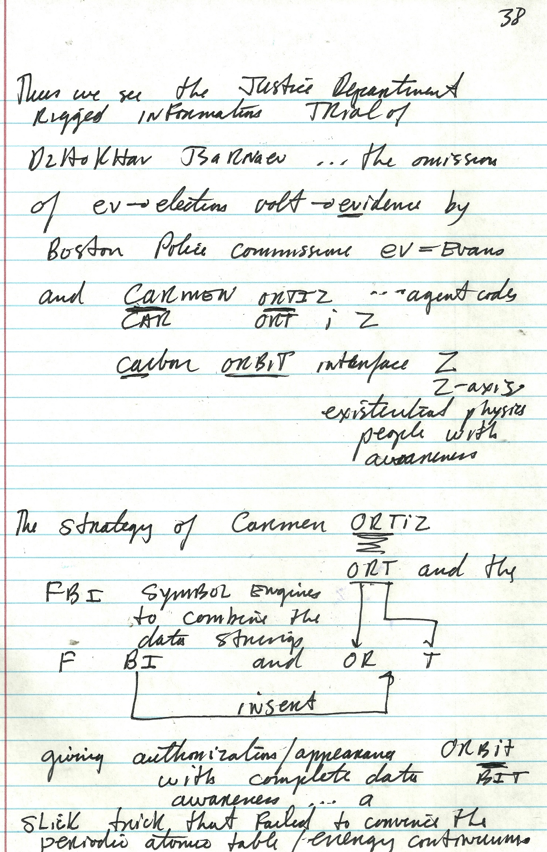 38
Thus we see the Justice Department
Rigged information TRial of
DzHoKHar TsaRNaev ... the omission
of ev→electron volt→evidence by
Boston Police commissione ev = Evans
and CARMEN ORTIZ ...agent codes
CAR ORT i Z
carbon ORBiT interface Z
Z-axis
existential physics
people with
awareness
The strategy of Carmen ORTiZ
ORT and the
FBI SYMBOL Engines
to combine the
data strings
F BI and OR T
insert
giving authorization/appearance ORBit
with complete data BIT
awareness ... a
slick trick that failed to convince the
periodic atomic table / energy continuums